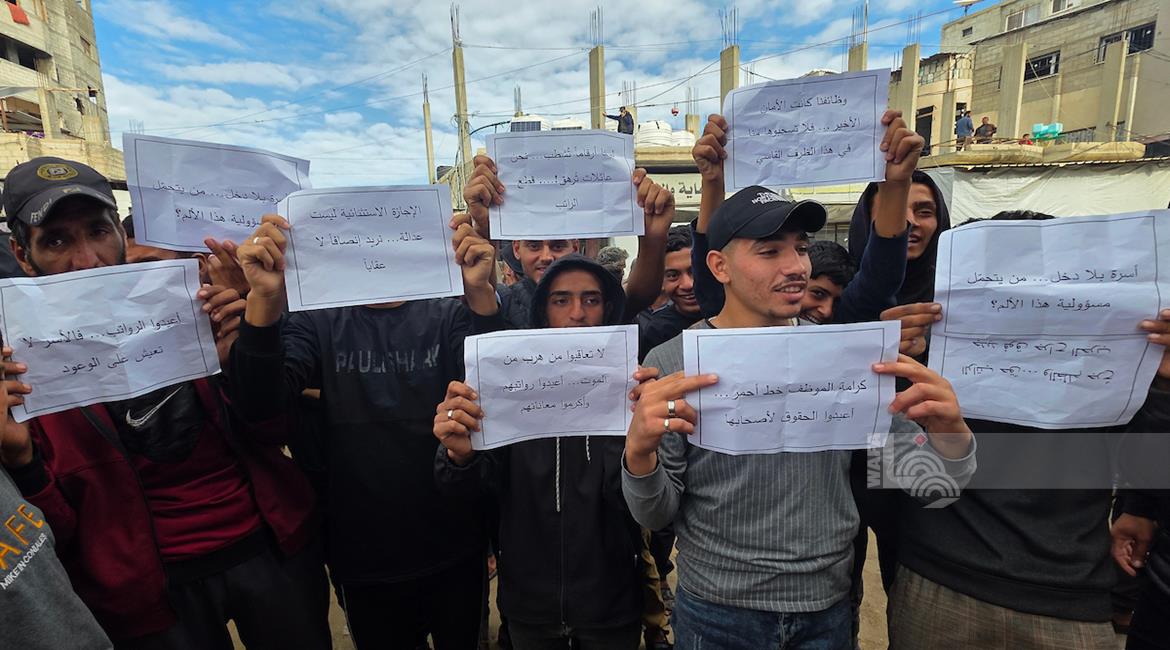 وظائفنا كانت الأمان
الأخير... فلا تسحبوها منا
في هذا الظرف القاسي
لسنا أرقاماً تُشطب... نحن
عائلات تُرهق!.... قطع
الراتب
أسرة بلا دخل... من يتحمّل
مسؤولية هذا الألم؟
الإجازة الاستثنائية ليست
عدالة... نريد إنصافاً لا
عقاباً
أعيدوا الرواتب... فالأسر لا
تعيش على الوعود
لا تعاقبوا من هرب من
الموت... أعيدوا رواتبهم
وأكرموا معاناتهم
كرامة الموظف خط أحمر...
أعيدوا الحقوق لأصحابها
أسرة بلا دخل... من يتحمّل
مسؤولية هذا الألم؟
PAUL SHAAK
MIKE IN CONALES
WAFA